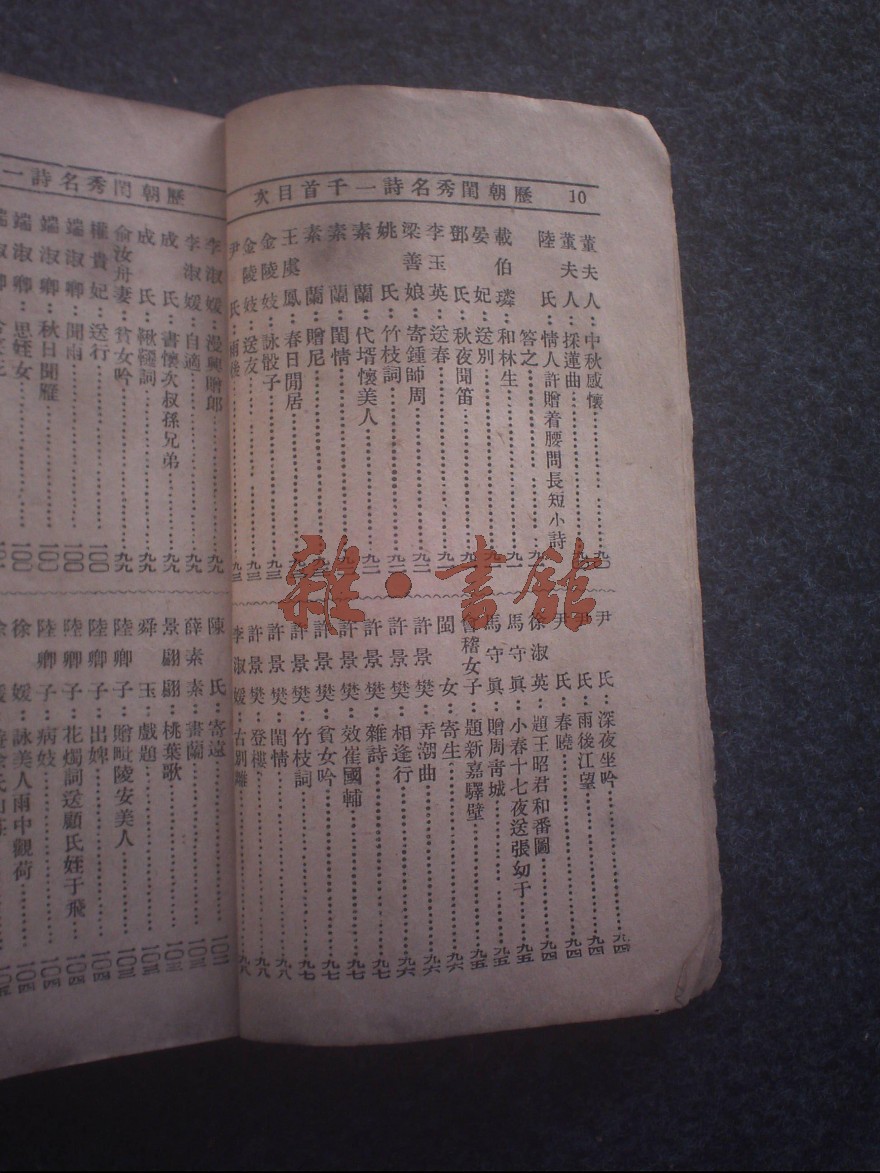 歷朝閨秀名詩一千首目次 10
董夫人·中秋感懷 九〇
董夫人·採蓮曲
陸氏·情人許贈着腰問長短小詩
答之
戴伯璘·和林生 九一
晏妃·送別 九一
鄧氏·秋夜聞笛 九一
李玉英·送春 九一
梁善娘·寄鍾師周 九一
姚氏·竹枝詞 九二
素蘭·代壻懷美人 九二
素蘭·閨情
素蘭·贈尼
王虞鳳·春日閒居
金陵妓·詠骰子 九三
金陵妓·送友 九三
尹氏·雨後 九三
尹氏·深夜坐吟 九四
尹氏·雨後江望 九四
尹氏·春曉 九四
徐淑英·題王昭君和番圖 九四
馬守眞·小春十七夜送張幼于 九五
馬守眞·贈周靑城 九五
會稽女子·題新嘉驛壁 九五
閩女·寄生 九六
許景樊·弄潮曲 九六
許景樊·相逢行 九六
許景樊·雜詩 九七
許景樊·效崔國輔 九七
許景樊·貧女吟 九七
許景樊·竹枝詞 九七
許景樊·閨情 九八
許景樊·登樓 九八
李淑媛·古別離 九八
歷朝閨秀名詩一
李淑媛·漫興贈郎 九九
李淑媛·自適 九九
成氏·書懷次叔孫兄弟 九九
成氏·鞦韆詞 九九
俞汝舟妻·貧女吟 九九
權貴妃·送行 一〇〇
端淑卿·聞雨 一〇〇
端淑卿·秋日聞雁 一〇〇
端淑卿·思姪女
陳氏·寄遠
薛素素·書蘭 一〇三
景翩翩·桃葉歌 一〇三
舜玉·戲題 一〇三
陸卿子·贈毗陵安美人 一〇三
陸卿子·出婢 一〇四
陸卿子·花燭詞送顧氏姪于飛 一〇四
陸卿子·病妓 一〇四
徐媛·詠美人雨中觀荷 一〇四
雜·書館